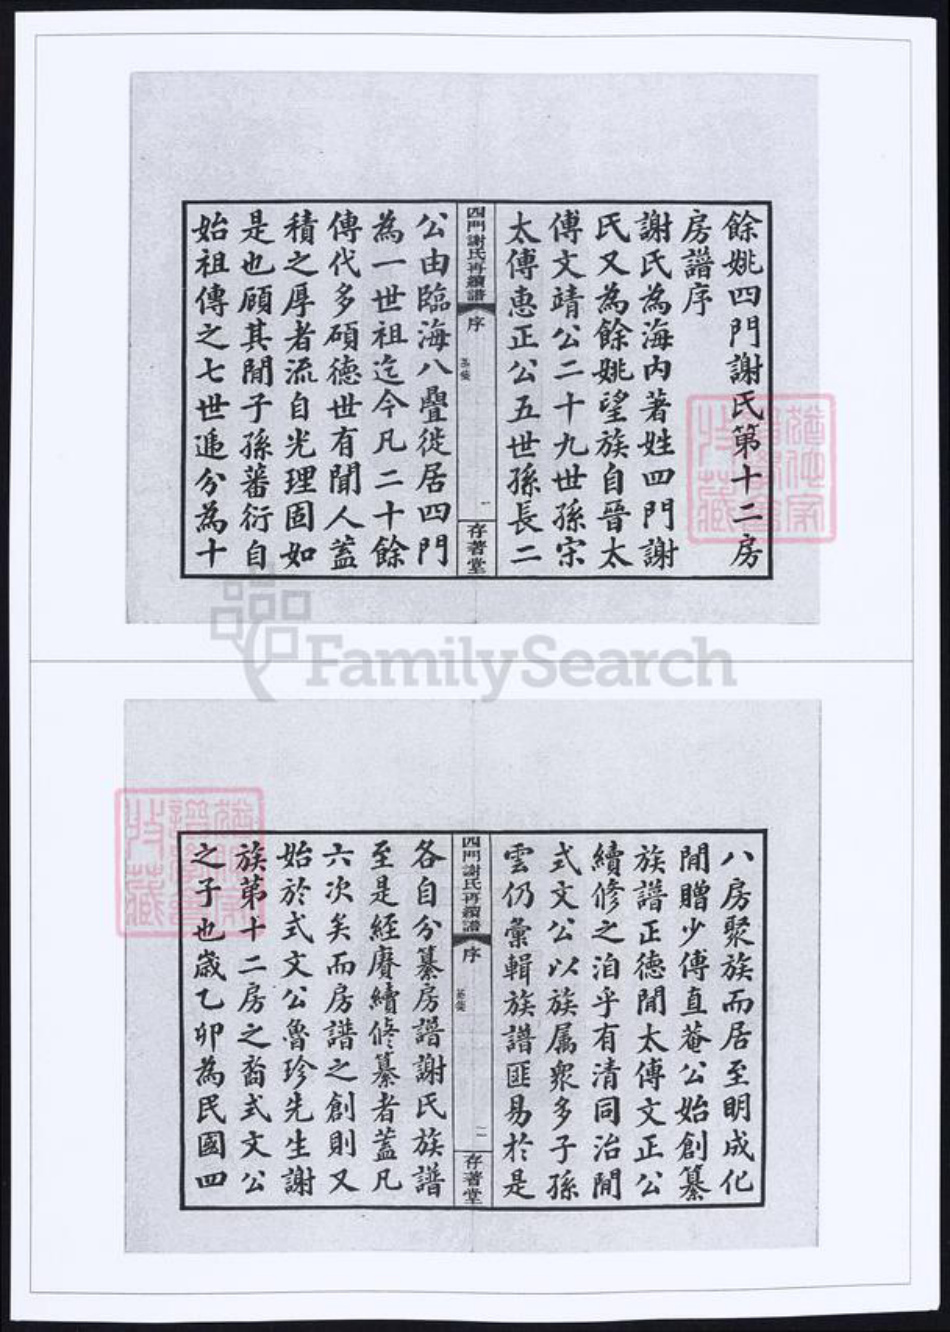 餘姚四門謝氏第十二房
房譜序
謝氏為海内著姓四門謝
氏又為餘姚望族自晉太
傅文靖公二十九世孫宋
太傅惠正公五世孫長二
四門謝氏再續譜
序
一
存著堂
公由臨海八疊徙居四門
為一世祖迄今凡二十餘
傳代多碩德世有聞人蓋
積之厚者流自光理固如
是也顧其閒子孫蕃衍自
始祖傳之七世遞分為十
FamilySearch
八房聚族而居至明成化
閒贈少傅直菴公始創纂
族譜正德閒太傅文正公
續修之洎乎有清同治閒
式文公以族属衆多子孫
雲仍彙輯族譜匪易於是
四門謝氏再續譜
序
二
存著堂
各自分纂房譜謝氏族譜
至是經賡續修纂者蓋凡
六次矣而房譜之創則又
始於式文公魯珍先生謝
族第十二房之裔式文公
之子也歲乙卯為民國四